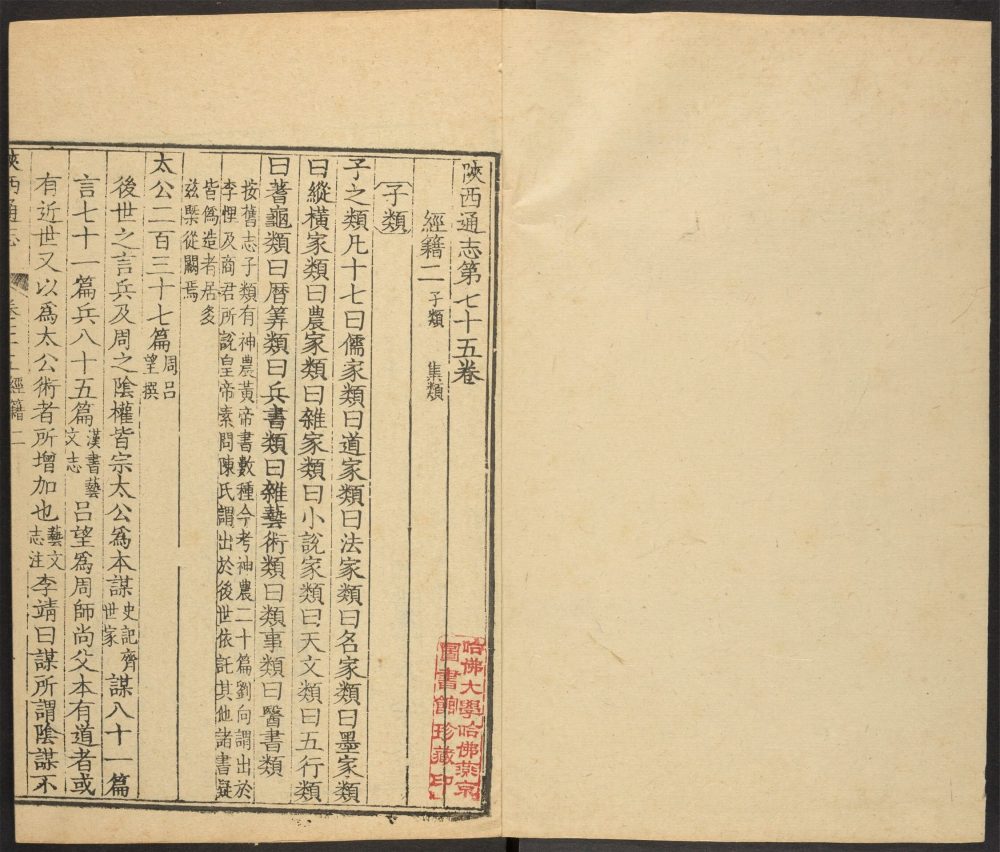 陝西通志第七十五卷
經籍二 子類 集類
子類
子之類凡十七曰儒家類曰道家類曰法家類曰名家類曰墨家類
曰縱橫家類曰農家類曰雜家類曰小說家類曰天文類曰五行類
曰蓍龜類曰曆筭類曰兵書類曰雜藝術類曰類事類曰醫書類
按舊志子類有神農黃帝書數種今考神農二十篇劉向謂出於
李悝及商君所說皇帝素問陳氏謂出於後世依託其他諸書疑
皆爲造者居多
茲槩從闕焉
太公二百三十七篇 周呂望撰
後世之言兵及周之陰權皆宗太公爲本謀 史記齊世家 謀八十一篇
言七十一篇兵八十五篇 漢書藝文志 呂望爲周師尚父本有道者或
有近世又以爲太公術者所增加也 藝文志注 李靖曰謀所謂陰謀不
陝西通志 經籍二
哈佛大學哈佛燕京
圖書館珍藏印